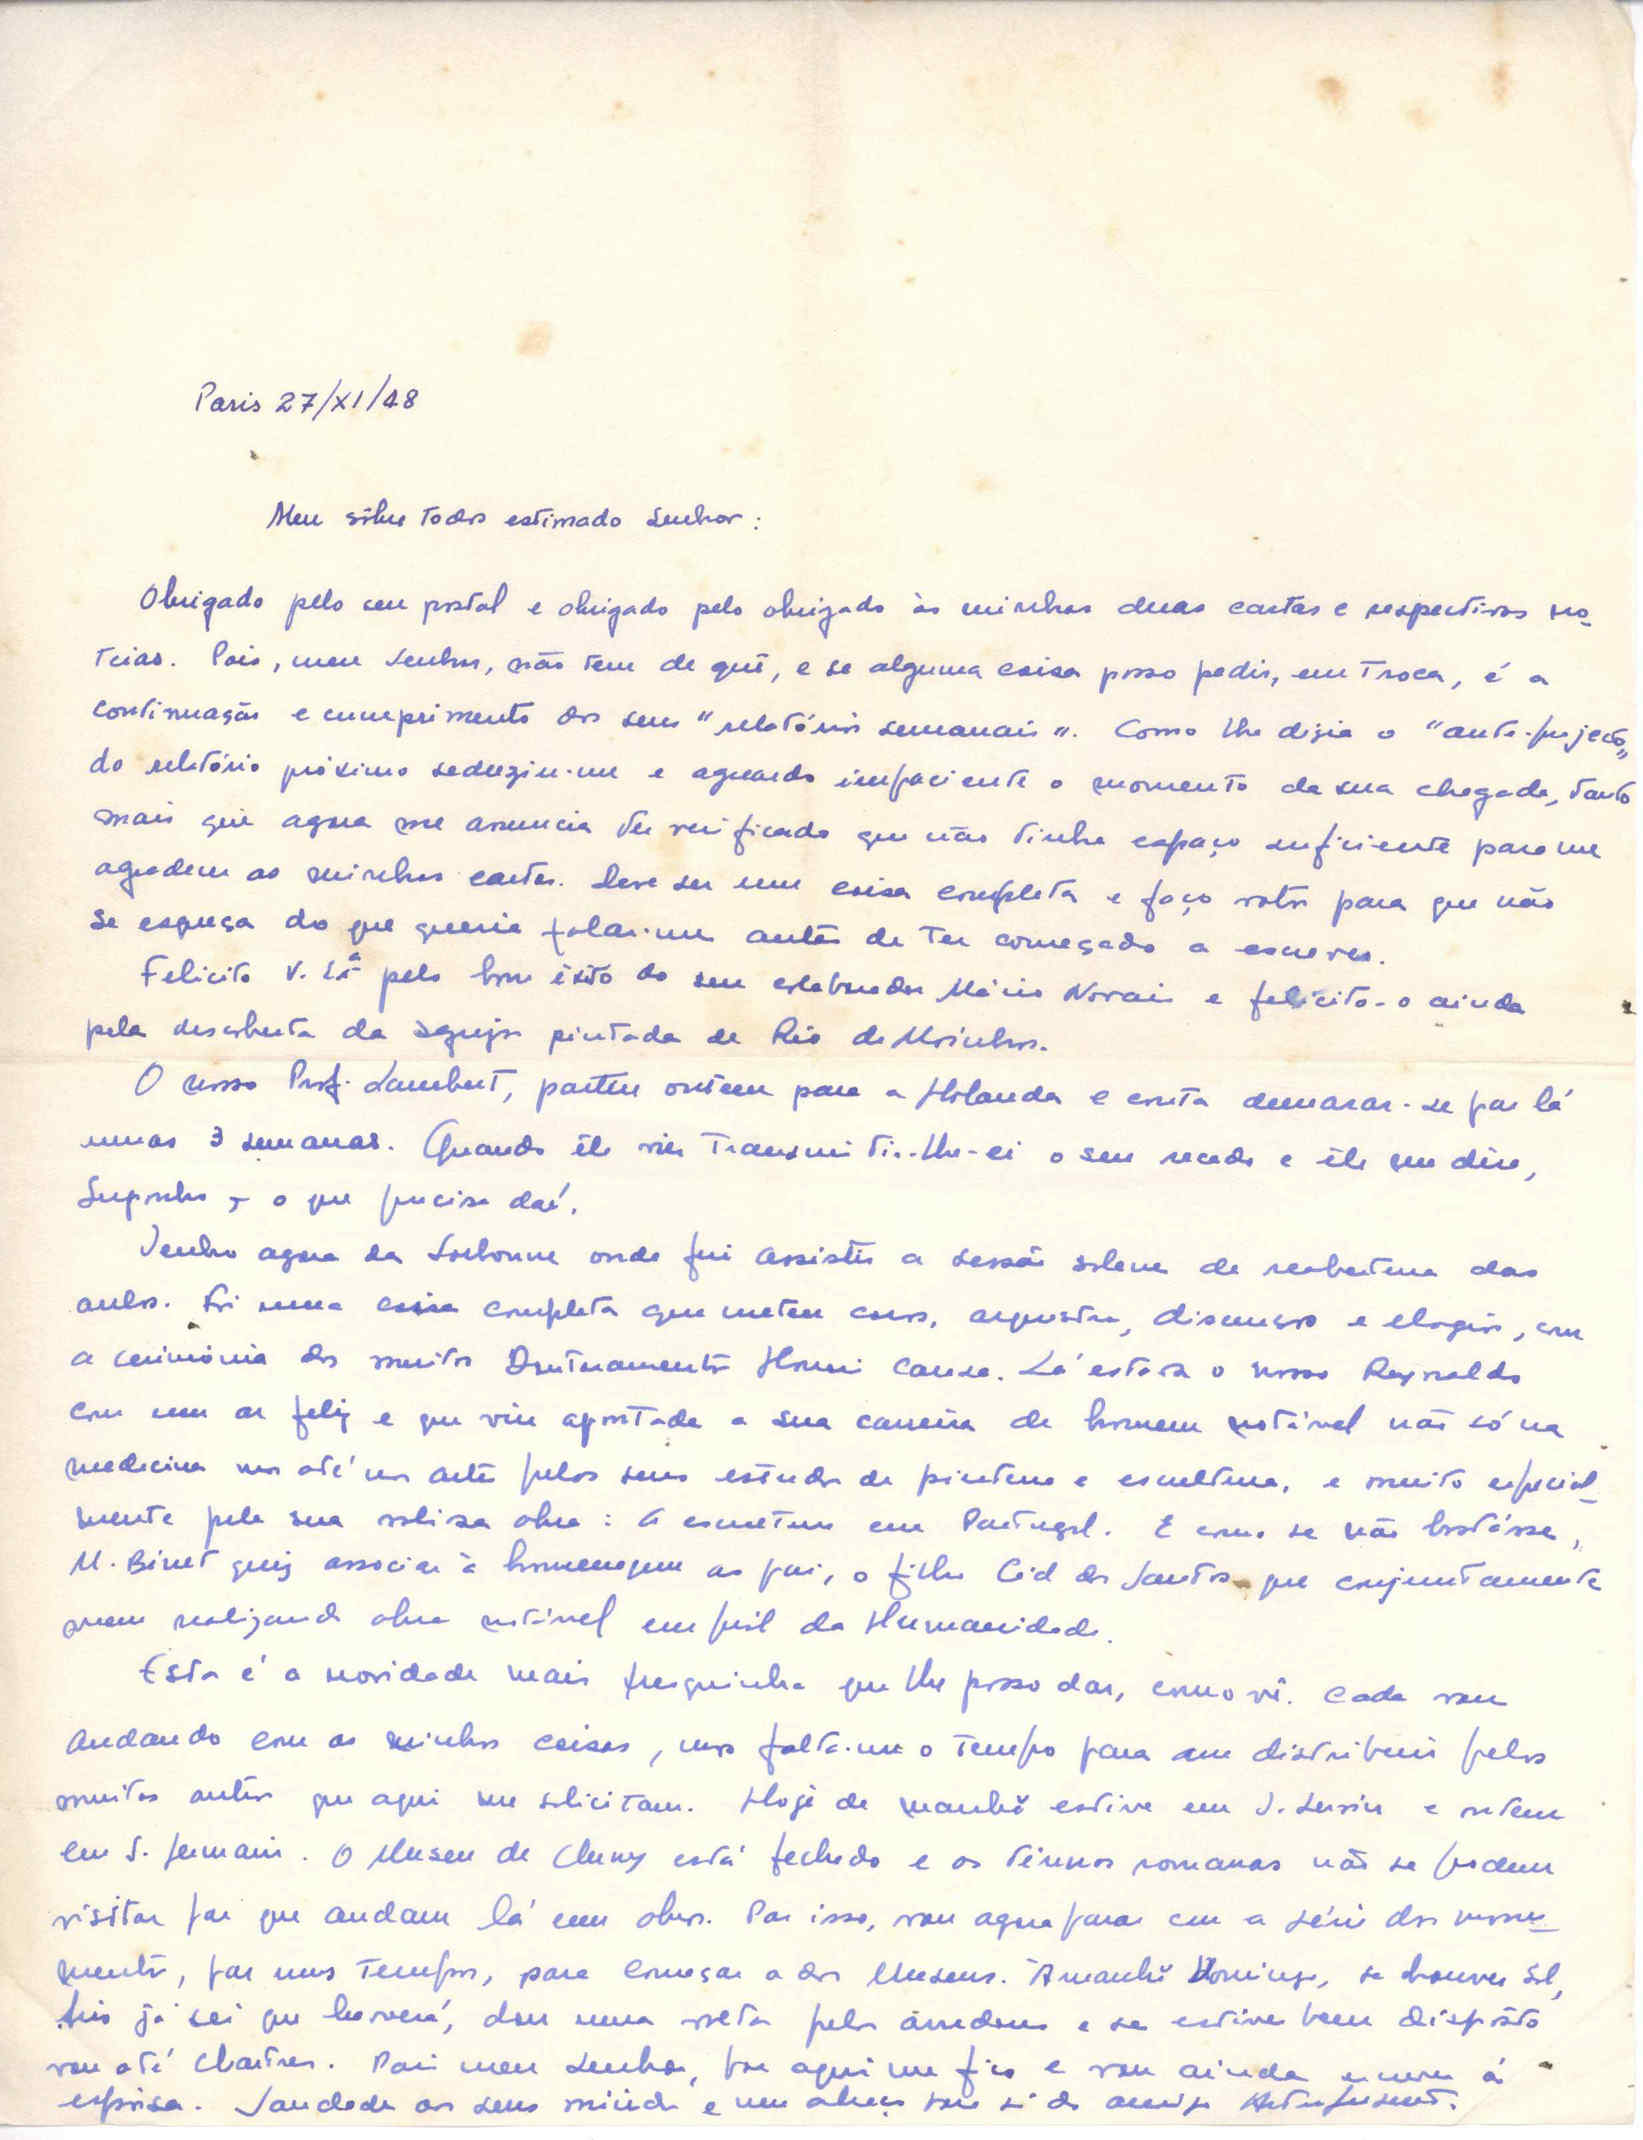 Paris 27/XI/48
Meu sôbre todos estimado Senhor:
Obrigado pelo seu postal e obrigado pelo obrigado às minhas duas cartas e respectivas no-
tícias. Pois, meu Senhor, não tem de quê, e se alguma coisa posso pedir, em troca, é a
continuação e cumprimento dos seus "relatórios semanais". Como lhe dizia o "ante-projecto"
do relatório próximo seduziu-me e aguardo impaciente o momento da sua chegada, tanto
mais que agora me anuncia ter verificado que não tinha espaço suficiente para me
agradecer as minhas cartas. Deve ser uma coisa completa e faço votos para que não
se esqueça do que queria falar-me antes de ter começado a escrever.
Felicito V. Exª pelo bom êxito do seu colaborador Mário Novais e felicito-o ainda
pela descoberta da igreja pintada de Rio de Moinhos.
O nosso Prof. Lambert, partiu ontem para a Holanda e conta demorar-se por lá
umas 3 semanas. Quando êle vier transmitir-lhe-ei o seu recado e êle me dirá,
suponho, o que precisa daí.
Venho agora da Sorbonne onde fui assistir a sessão solene de reabertura das
aulas. Foi uma coisa completa que meteu coros, orquestra, discursos e elogios, com
a cerimónia dos muitos Doutoramentos Honoris Causa. Lá estava o nosso Reynaldo
com um ar feliz e que viu apontada a sua carreira de homem notável não só na
medicina mas até nas artes pelos seus estudos de pintura e escultura, e muito especial-
mente pela sua valiosa obra: A escultura em Portugal. E como se não bastásse,
M. Binet quiz associar à homenagem ao pai, o filho Cid dos Santos que conjuntamente
vem realizando obra notável em prol da Humanidade.
Esta é a novidade mais fresquinha que lhe posso dar, como vê. Cada vou
andando com as minhas coisas, mas falta-me o tempo para me distribuir pelos
muitos que aqui me solicitam. Hoje de manhã estive em S. e ontem
em S. Germain. O Museu de Cluny está fechado e as termas romanas não se podem
visitar por que andam lá em obras. Por isso, vou agora parar com a série dos monu-
mentos, por uns tempos, para começar a dos Museus. Amanhã Domingo, se houver Sol,
frio já sei que haverá, dou uma volta pelos arredores e se estiver bem disposto
vou até Chartres. Pois meu Senhor, por aqui me fico e vou ainda escrever à
espôsa. Saudades aos seus miúdos e um abraço para si do amigo